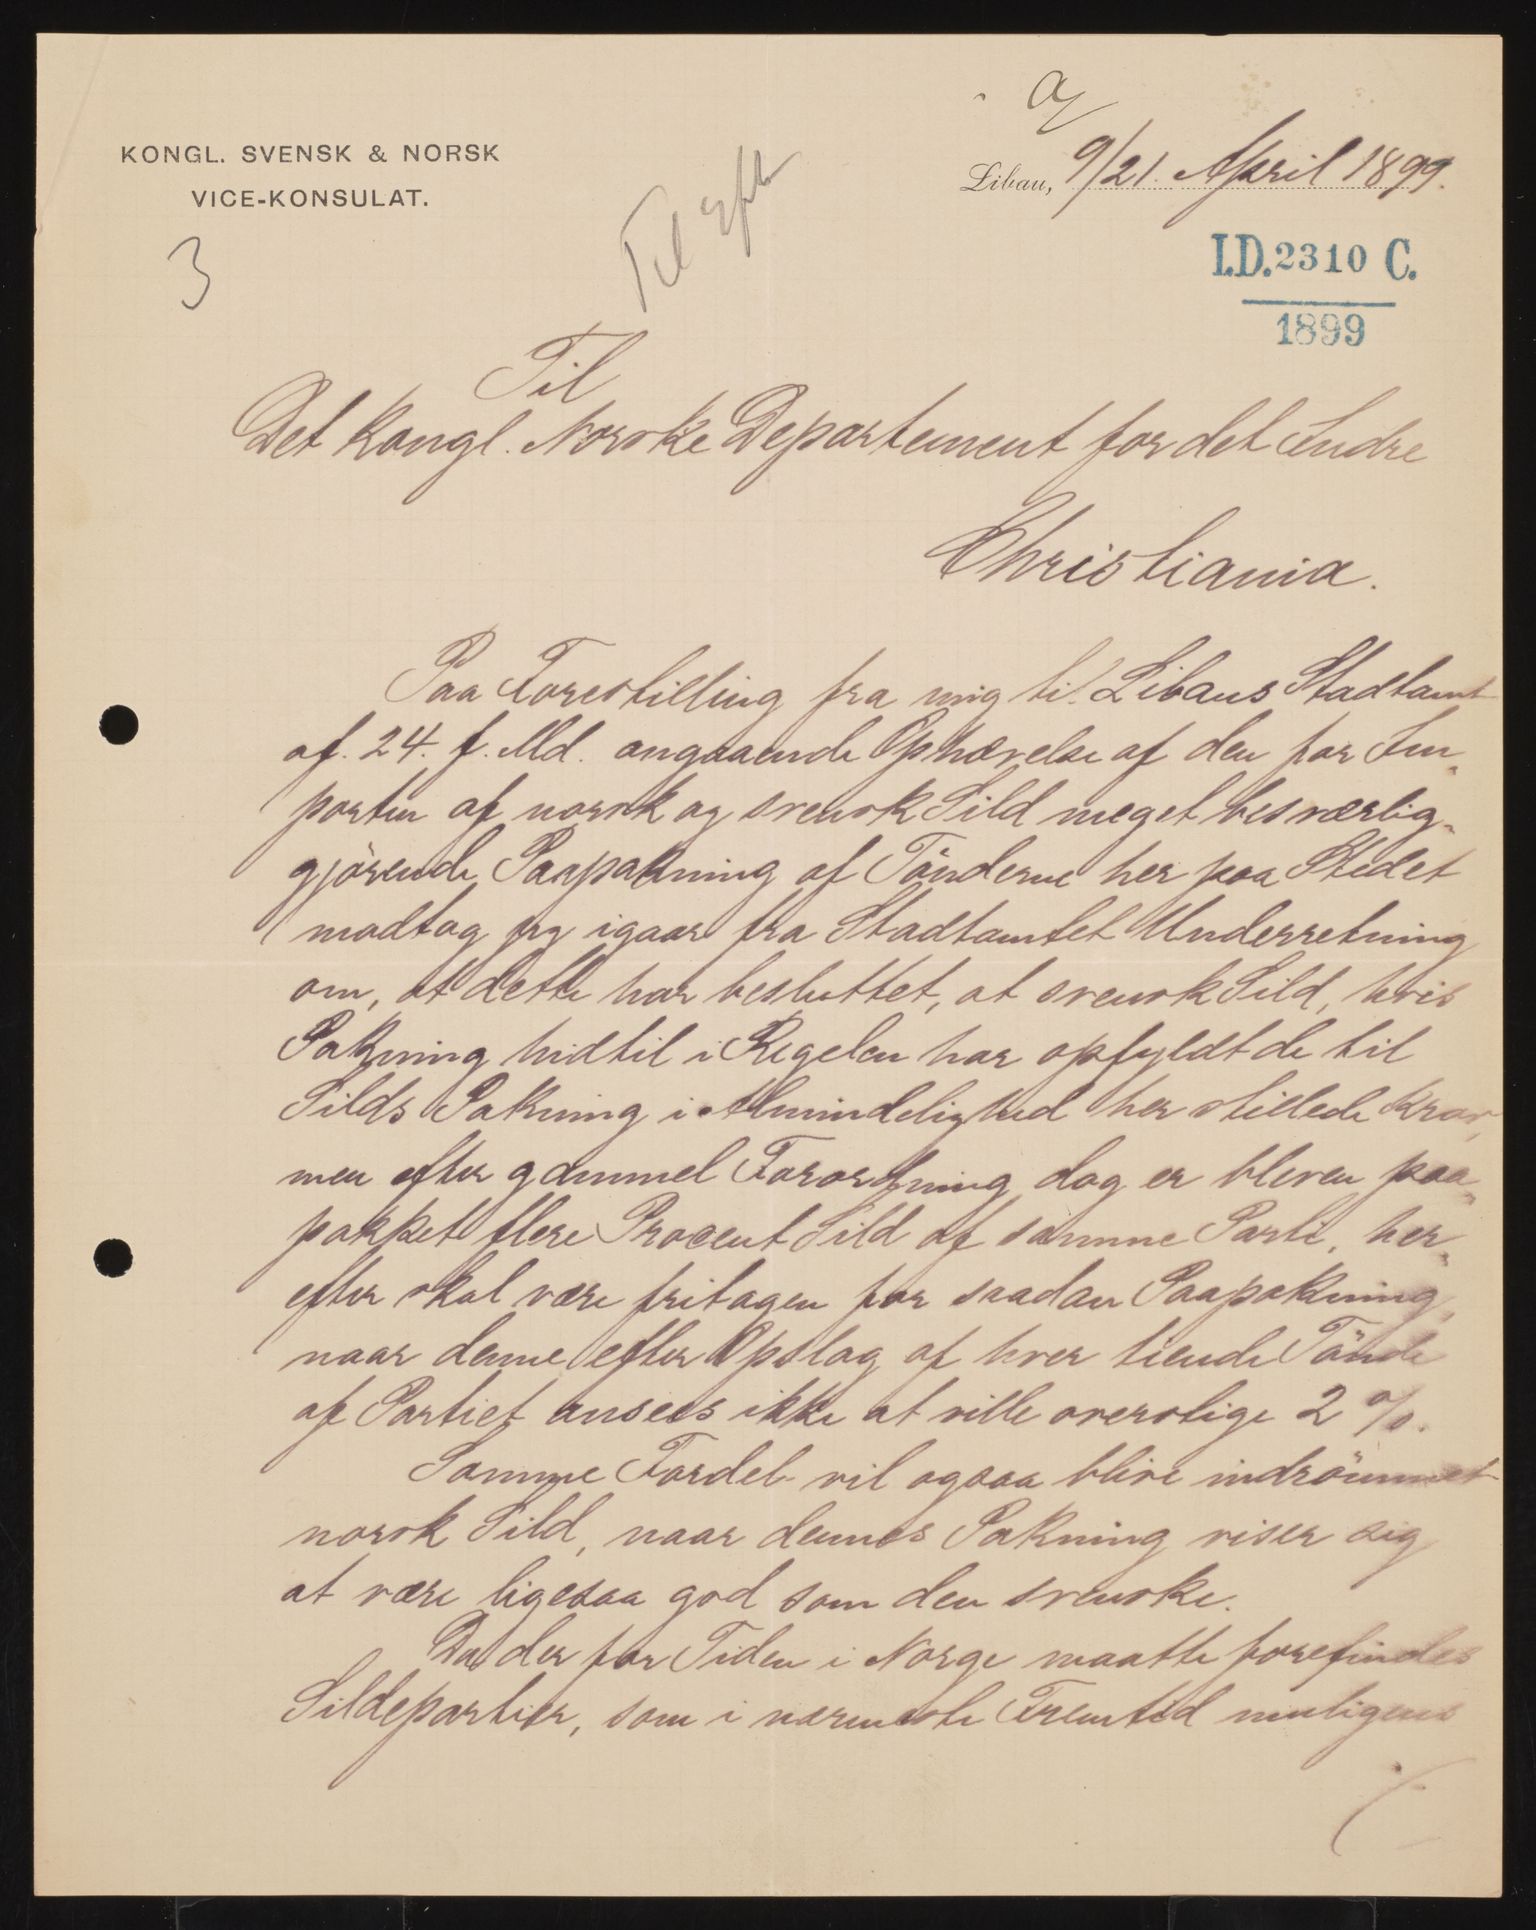 a/
KONGL. SVENSK & NORSK
VICE-KONSULAT.
Libau, 9/21. April 1899.
3
Til Eft
I.D. 2310 C.
1899
Til
Det Kongl. Norske Departement for det Indre
Christiania.
Paa Forestilling fra mig til Libaus Stadtamt
af. 24. f. Md. angaaende Ophævelse af den for Im„
porten af norsk og svensk Sild meget besværlig„
gjörende Paapakning af Tönderne her paa Stedet
modtog jeg igaar fra Stadtamtet Underretning
om, at dette har besluttet, at svensk Sild, hvis
Pakning hidtil i Regelen har opfyldt de til
Silds Pakning i Almindelighed her stillede Krav,
men efter gammel Forordning dog er bleven paa„
pakket flere Procent Sild af samme Parti, her„
efter skal være fritagen for saadan Paapakning,
naar denne efter Opslag af hver tiende Tönde
af Partiet ansees ikke at ville overstige 2 %.
Samme Fordel vil ogsaa blive indrömmet
norsk Sild, naar dennes Pakning viser sig
at være ligesaa god som den svenske.
Da der for Tiden i Norge maatte forefindes
Sildepartier, som i nærmeste Fremtid muligens
./.